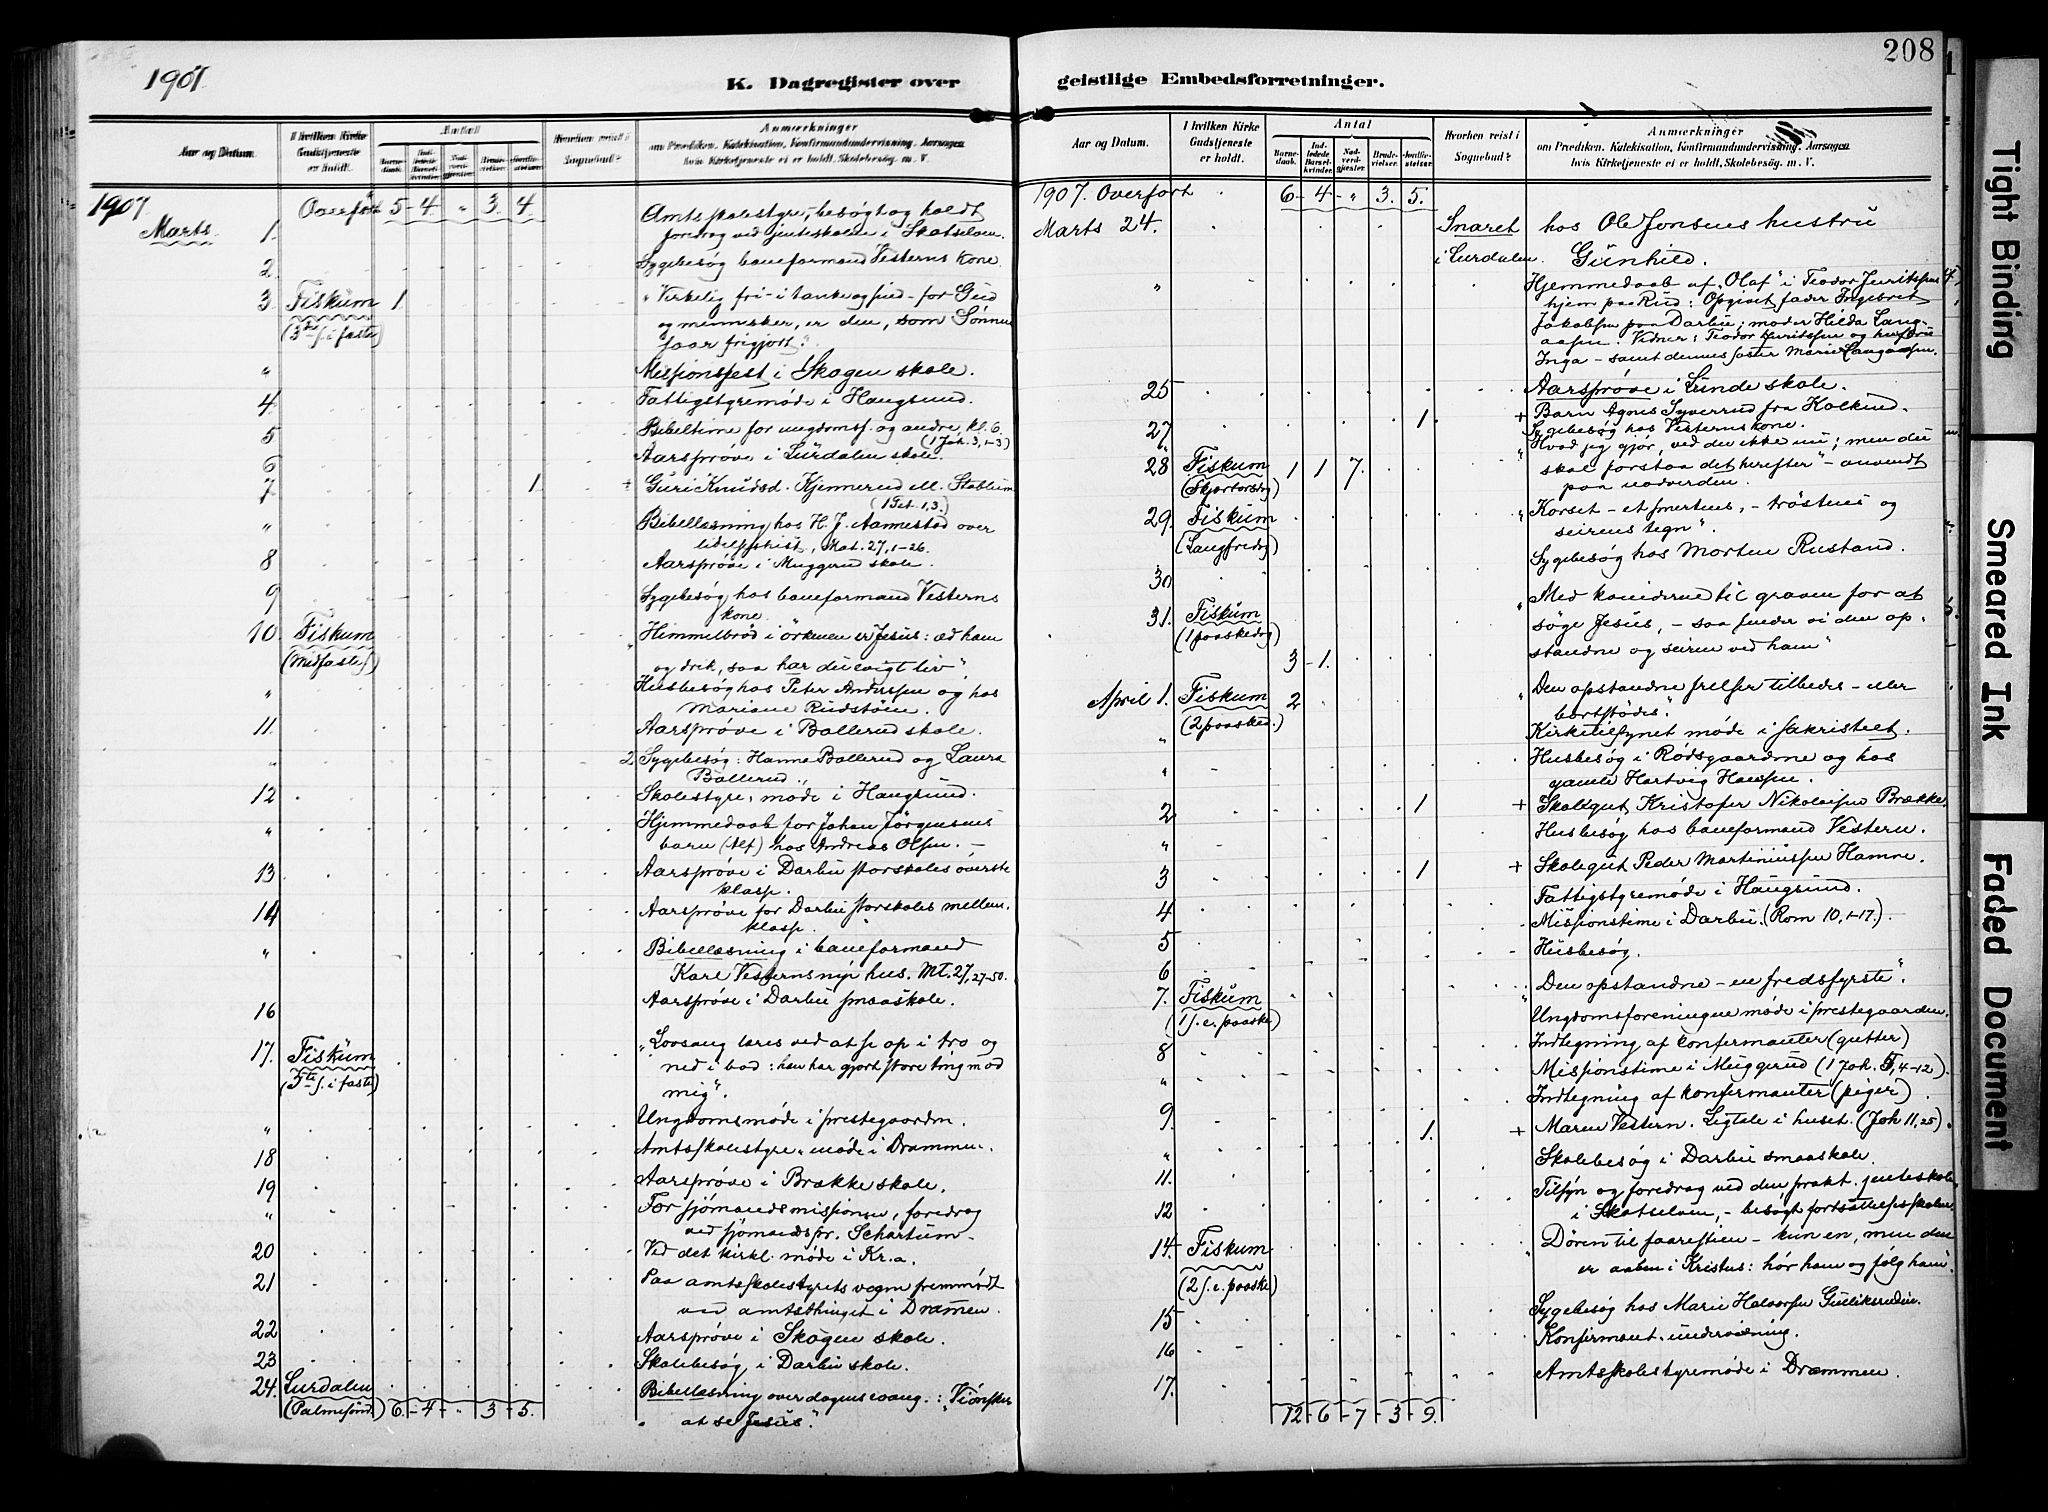 1907.
K. Dagregister over
Aar og Datum.
I hvilken Kirke Gudstjeneste er holdt.
Antal
Hvorhen reist i Sognebud?
Anmærkninger
om Prædiken, Katekisation, Konfirmandundervisning, Aarsagen
hvis Kirketjeneste ei er holdt, Skolebesøg. m. V.
1907 Overført 5-4 " 3. 4.
Marts 1. Amtsskolestyre, - besøgt og holdt
foredrag ved jenteskolen i Skotselven.
2 Sygebesøg baneformand Vesterns kone.
3. Fiskum 1. "Virkelig fri - i tanke og sind - for Gud
(3die s. i faste) og mennesker, er den, som Sønnen
faar frigjort".
" Missionsfest i Skogen skole.
4 Fattigstyremøde i Haugsund.
5 Bibeltime for ungdomsf. og andre, kl. 6.
(1 Joh. 3, 1-3)
6 Aarsprøve i Lurdalen skole.
7 1. + Guri Knudsd. Kjennerud ell. Stablum
(1 Pet. 1, 3.)
" Bibellæsning hos H. J. Aannestad over
lidelseshist, Mat. 27, 1-26.
8 Aarsprøve i Muggerud skole.
9 Sygebesøg hos baneformand Vesterns
kone.
10. Fiskum "Himmelbrød i ørkenen er Jesus: æd ham
(Midfaste) og drik, saa har du evigt liv".
" Husbesøg hos Peter Anderssen og hos
Mariane Rudstøen.
11. Aarsprøve i Bollerud skole.
" 2 Sygebesøg: Hanna Bollerud og Laura
Bollerud.
12 Skolestyre, møde i Haugsund.
" Hjemmedaab for Johan Jörgensens
barn (Alf) hos Andreas Olsen. -
13 Aarsprøve i Darbu storskoles øverste
klasse.
14 Aarsprøve for Darbu storskoles mellem.
klasse.
" Bibellæsning i baneformand
Karl Vesterns nye hus. Mt. 27, 27-50.
16 Aarsprøve i Darbu smaaskole.
17. Fiskum "Lovsang læres ved at se op i tro og
(5te s. i faste) ned i bod: han har gjort store ting mod
mig".
" Ungdomsmøde i prestegaarden.
18 Amtsskolestyre, møde i Drammen.
19 Aarsprøve i Brække skole.
" For sjømandsmissionen, foredrag
ved sjømandspr. Schartum.
20 Ved det kirkl. møde i Kr.a.
21 Paa amtsskolestyrets vegne fremmødt
ved amtsthinget i Drammen.
22 Aarsprøve i Skogen skole.
23 Skolebesøg i Darbu skole.
24. Lurdalen Bibellæsning over dagens evang.: "Vi ønsker
(Palmesönd.) 6-4-"-3-5. at se Jesus".
208
geistlige Embedsforretninger.
Aar og Datum.
I hvilken Kirke Gudstjeneste er holdt.
Antal
Barnedaab.
Indledede Barselkvinder.
Nadverdgjester.
Brudevielser.
Jordfæstelser.
Hvorhen reist i Sognebud?
Anmærkninger
om Prædiken, Katekisation, Konfirmandundervisning, Aarsagen
hvis Kirketjeneste ei er holdt, Skolebesøg. m. V.
1907. Overført 6-4-"-3. 5.
Marts 24. Snaret hos Ole Jonsens hustru
i Lurdalen. Gunhild.
" Hjemmedaab af "Olaf" i Teodor Juritssens
hjem paa Rud: Opgivet fader Ingebret
Jakobsen paa Darbu; moder Hilda Lang-
aasen. Vidner: Teodor Juritssen og hustru
Inga - samt dennes søster Marie Langaasen.
25 Aarsprøve i Lunde skole.
27 1. + Barn Agnes Syverrud fra Kolkind.
" Sygebesøg hos Vesterns kone.
28 Fiskum 1 1 7. "Hvad jeg gjør, ved du ikke nu; men du
(Skjærtorsdag) skal forstaa det herefter" - anvendt
paa nadverden.
29. Fiskum "Korset - et smertens, - trøstens og
(Langfredag) seirens tegn".
30 Sygebesøg hos Morten Rustand.
31. Fiskum "Med kvinderne til graven for at
(1 paaskedag) søge Jesus, - saa finder vi den op-
3-1. standne og seiren ved ham"
April 1. Fiskum 2 "Den opstandne frelser tilbedes - eller
(2 paasked.) bortstødes".
" Kirketilsynet møde i sakristeet.
" Husbesøg i Rødsgaardene og hos
gamle Hartvig Hansen.
2 1 + Skolegut Kristofer Nikolaisen Brække.
" Husbesøg hos baneformand Vestern.
3 1 + Skolegut Peder Martiniussen Hamre.
4 Fattigstyremøde i Haugsund.
5 Missionstime i Darbu. (Rom 10, 1-17).
6 Husbesøg.
7. Fiskum "Den opstandne - en fredsfyrste".
(1 s. e. paaske) Ungdomsforeningens møde i prestegaarden.
8 Indtegning af konfirmanter (gutter)
" Missionstime i Muggerud (1 Joh. 5, 4-12).
9 Indtegning af konfirmanter (piger)
" 1. + Maren Vestern. Ligtale i huset. (Joh 11, 25).
11. Skolebesøg i Darbu smaaskole.
12 Tilsyn og foredrag ved den prakt. jenteskole
i Skotselven, - besøgt fortsættelsesskolen.
14. Fiskum "Døren til faarestien - kun en, men den
(2 s. e. paaske) er aaben i Kristus: hør ham og følg ham".
15 Sygebesøg hos Marie Halvorsen Gulliksrudeie.
16 Konfirmant. undervisning.
17. Amtsskolestyremøde i Drammen.
12-6-7-3-9.
Tight Binding
Smeared Ink
Faded Document